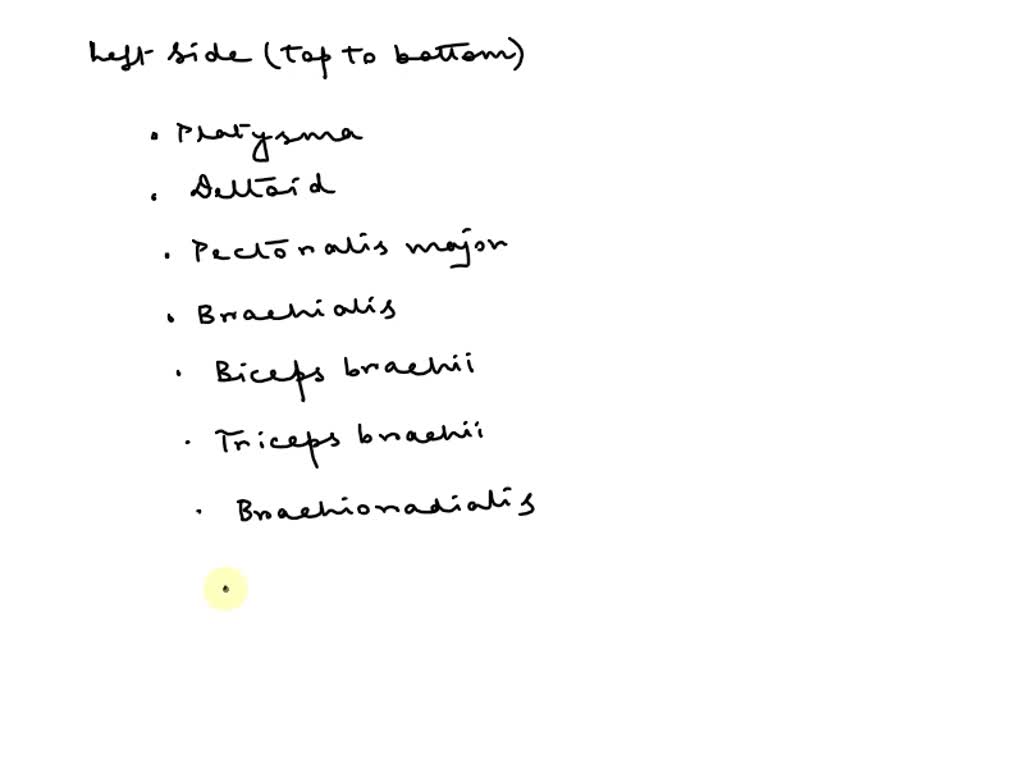 Left side (top to bottom)
• Platysma
• Deltoid
• Pectoralis major
• Brachialis
• Biceps brachii
• Triceps brachii
• Brachioradialis
•